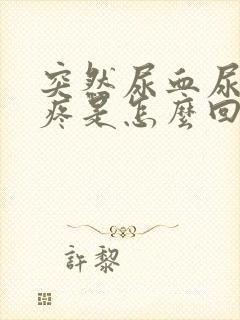 突然尿血尿
疼是怎麼回
許黎